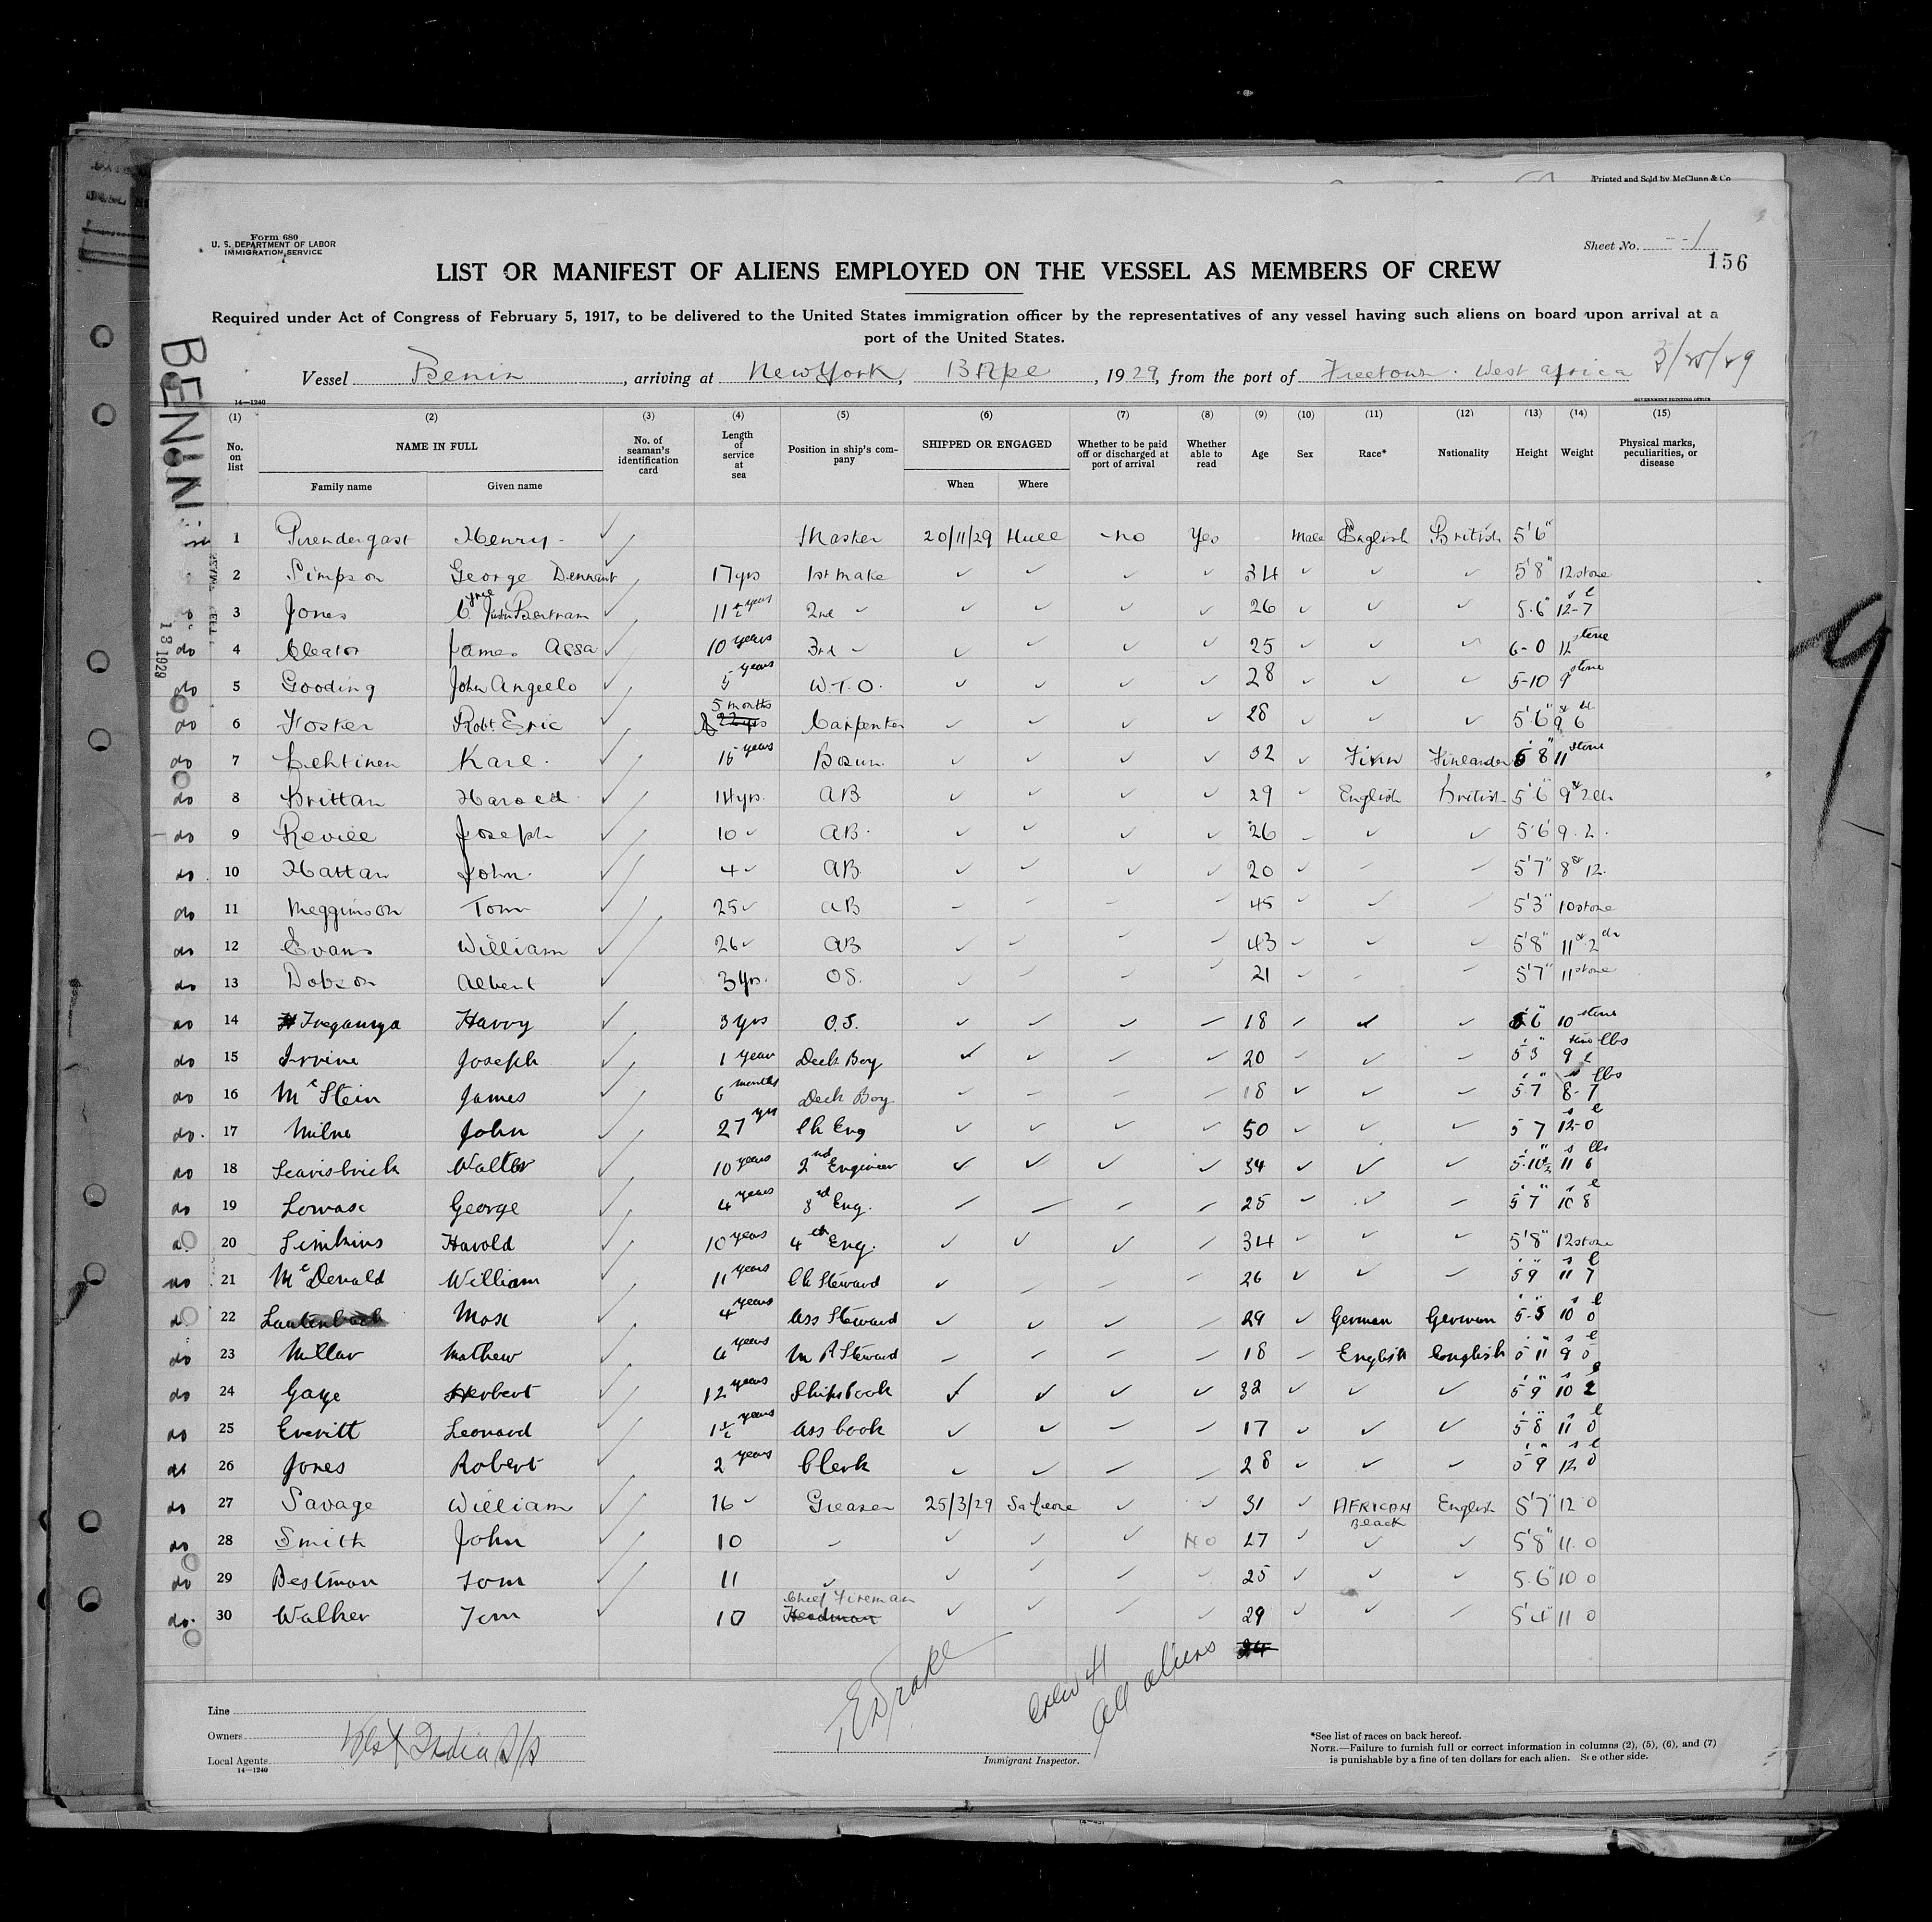 Printed and Sold by McClunn & Co
Form 680
U. S. DEPARTMENT OF LABOR
IMMIGRATION SERVICE
Sheet No. 1
156
LIST OR MANIFEST OF ALIENS EMPLOYED ON THE VESSEL AS MEMBERS OF CREW
Required under Act of Congress of February 5, 1917, to be delivered to the United States immigration officer by the representatives of any vessel having such aliens on board upon arrival at a
port of the United States.
Vessel Benin, arriving at New York, 1929, from the port of Freetown. West Africa
BENIN
14—1240
GOVERNMENT PRINTING OFFICE
(1) (2) (3) (4) (5) (6) (7) (8) (9) (10) (11) (12) (13) (14) (15)
No. on list NAME IN FULL No. of seaman's identification card Length of service at sea Position in ship's company SHIPPED OR ENGAGED Whether to be paid off or discharged at port of arrival Whether able to read Age Sex Race* Nationality Height Weight Physical marks, peculiarities, or disease
Family name Given name When Where
1 Prendergast Henry Master 20/11/29 Hull no Yes Male English British 5'6"
do 2 Simpson George Dennant 17 yrs 1st mate ✓ ✓ ✓ ✓ 34 ✓ ✓ ✓ 5'8" 12 stone
do 3 Jones Cyril Justin Bertram 11½ years 2nd ✓ ✓ ✓ ✓ ✓ 26 ✓ ✓ ✓ 5.6" 12-7
do 4 Cleator James 10 years 3rd ✓ ✓ ✓ ✓ ✓ 25 ✓ ✓ ✓ 6-0 stone
do 5 Gooding John Angello 5 years W.T.O. ✓ ✓ ✓ ✓ 28 ✓ ✓ ✓ 5-10 9 stone
do 6 Foster Robt. Eric 5 months Carpenter ✓ ✓ ✓ ✓ 28 ✓ ✓ ✓ 5'6" 9 6
do 7 Lehtinen Karl 15 years Bosun ✓ ✓ ✓ ✓ 32 ✓ Finn Finlander 5 8" 11 stone
do 8 Brittan Harold 14 yrs. AB ✓ ✓ ✓ ✓ 29 ✓ English British 5'6" 9 st 2 lb
do 9 Revill Joseph 10 ✓ AB. ✓ ✓ ✓ ✓ 26 ✓ ✓ ✓ 5'6 9.2.
do 10 Hattan John 4 ✓ AB. ✓ ✓ ✓ ✓ 20 ✓ ✓ ✓ 5'7" 8 st 12.
do 11 Megginson Tom 25 ✓ AB ✓ ✓ ✓ ✓ 45 ✓ ✓ ✓ 5'3" 10 stone
do 12 Evans William 26 ✓ AB ✓ ✓ ✓ ✓ 43 ✓ ✓ ✓ 5'8" 11 st 2
do 13 Dobson Albert 3 yrs. OS. ✓ ✓ ✓ ✓ 21 ✓ ✓ ✓ 5'7" 11 stone
do 14 Harry 3 yrs O.S. ✓ ✓ ✓ ✓ 18 ✓ ✓ ✓ 5 6" 10 stone
do 15 Irvine Joseph 1 year Deck Boy ✓ ✓ ✓ ✓ 20 ✓ ✓ ✓ 5'3" 9 2 lbs
do 16 McStein James 6 months Deck Boy ✓ ✓ ✓ ✓ 18 ✓ ✓ ✓ 5'7" 8-7 lbs
do 17 Milne John 27 yrs Ch Eng ✓ ✓ ✓ ✓ 50 ✓ ✓ ✓ 5 7 12-0
do 18 Scarisbrick Walter 10 years 2nd Engineer ✓ ✓ ✓ ✓ 34 ✓ ✓ ✓ 5'10½" 11 6 lbs
do 19 Lomax George 4 years 3rd Eng. ✓ ✓ ✓ ✓ 25 ✓ ✓ ✓ 5'7" 10 8
20 Simkins Harold 10 years 4th Eng. ✓ ✓ ✓ ✓ 34 ✓ ✓ ✓ 5'8" 12 stone
do 21 McDonald William 11 years Ch Steward ✓ ✓ ✓ ✓ 26 ✓ ✓ ✓ 5'9" 11 7
22 Lautenbach Max 4 years Ass Steward ✓ ✓ ✓ ✓ 29 ✓ German German 5'5" 10 0
do 23 Millar Mathew 4 years M R Steward ✓ ✓ ✓ ✓ 18 ✓ English English 5'11" 9 0
do 24 Gaye Herbert 12 years Ships Cook ✓ ✓ ✓ ✓ 32 ✓ ✓ ✓ 5'9" 10 2
do 25 Everitt Leonard 1½ years Ass Cook ✓ ✓ ✓ ✓ 17 ✓ ✓ ✓ 5'8" 11 0
do 26 Jones Robert 2 years Clerk ✓ ✓ ✓ ✓ 28 ✓ ✓ ✓ 5'9" 12 0
do 27 Savage William 16 ✓ Greaser 25/3/29 Sa Leone ✓ ✓ 31 ✓ AFRICAN Black English 5'7" 12 0
do 28 Smith John 10 ✓ ✓ ✓ ✓ No 27 ✓ ✓ ✓ 5'8" 11 0
do 29 Bestman Tom 11 ✓ ✓ ✓ ✓ ✓ 25 ✓ ✓ ✓ 5.6" 10 0
do 30 Walker Tom 10 Chief Fireman Headman ✓ ✓ ✓ ✓ 29 ✓ ✓ ✓ 5'4" 11 0
24
Line
Owners
Local Agents West India S/S
14—1240
EDrake
Immigrant Inspector.
Crew 41
All aliens
*See list of races on back hereof.
NOTE.—Failure to furnish full or correct information in columns (2), (5), (6), and (7)
is punishable by a fine of ten dollars for each alien. See other side.